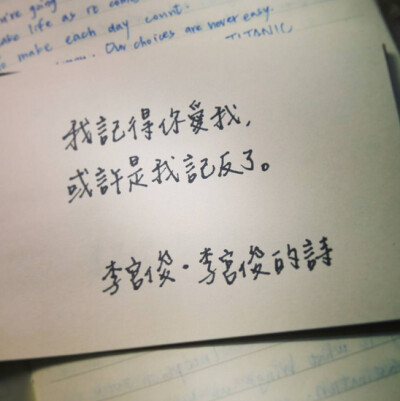 you're going
make life as it comes
to make each day count.
Our choices are never easy.
TITANIC
我記得你愛我,
或許是我記反了。
李宮俊·李宮俊的詩